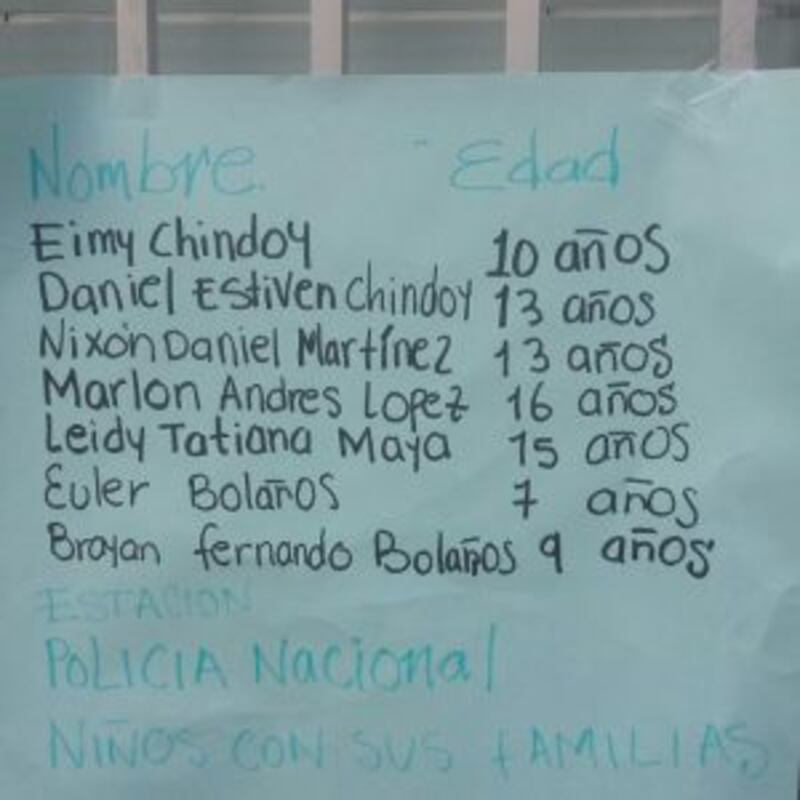 Nombre. - Edad
Eimy Chindoy 10 años
Daniel Estiven Chindoy 13 años
Nixon Daniel Martínez 13 años
Marlon Andres Lopez 16 años
Leidy Tatiana Maya 15 años
Euler Bolaños 7 años
Brayan fernando Bolaños 9 años
ESTACION
POLICIA Nacional
NIÑOS CON SUS fAMILIAS